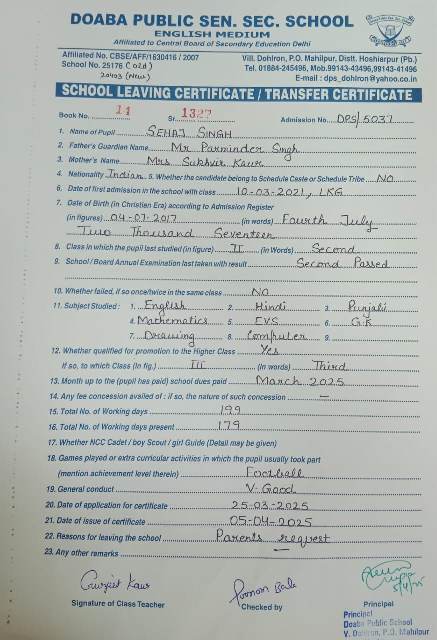 DOABA PUBLIC SEN. SEC. SCHOOL
ENGLISH MEDIUM
Affiliated to Central Board of Secondary Education Delhi
Affiliated No. CBSE/AFF/1630416 / 2007
Vill. Dohlron, P.O. Mahilpur, Distt. Hoshiarpur (Pb.)
School No. 25176 (old)
Tel. 01884-245496, Mob.99143-43496,99143-41496
20403 (New)
E-mail : dps_dohlron@yahoo.co.in
SCHOOL LEAVING CERTIFICATE / TRANSFER CERTIFICATE
Book No. 14 Sr. 1327 Admission No. DPS/5037
1. Name of Pupil SEHAJ SINGH
2. Father's Guardian Name Mr Parminder Singh
3. Mother's Name Mrs Sukhvir Kaur
4. Nationality Indian 5. Whether the candidate belong to Schedule Caste or Schedule Tribe NO
6. Date of first admission in the school with class 10-03-2021, LKG
7. Date of Birth (in Christian Era) according to Admission Register
(in figures) 04-07-2017 (in words) Fourth July
Two Thousand Seventeen
8. Class in which the pupil last studied (in figure) II (in Words) Second
9. School / Board Annual Examination last taken with result Second Passed
10. Whether failed, if so once/twice in the same class NO
11. Subject Studied : 1. English 2. Hindi 3. Punjabi
4. Mathematics 5. EVS 6. G.K
7. Drawing 8. Computer 9.
12. Whether qualified for promotion to the Higher Class Yes
If so, to which Class (in fig.) III (in words) Third
13. Month up to the (pupil has paid) school dues paid March 2025
14. Any fee concession availed of : if so, the nature of such concession —
15. Total No. of Working days 199
16. Total No. of Working days present 179
17. Whether NCC Cadet / boy Scout / girl Guide (Detail may be given)
18. Games played or extra curricular activities in which the pupil usually took part
(mention achievement level therein) Football
19. General conduct V. Good
20. Date of application for certificate 25-03-2025
21. Date of issue of certificate 05-04-2025
22. Reasons for leaving the school Parents request
23. Any other remarks —
Gurjeet Kaur
Poonam Bala
5/4/25
Signature of Class Teacher
Checked by
Principal
Principal
Doaba Public School
V. Dohlron, P.O. Mahilpur